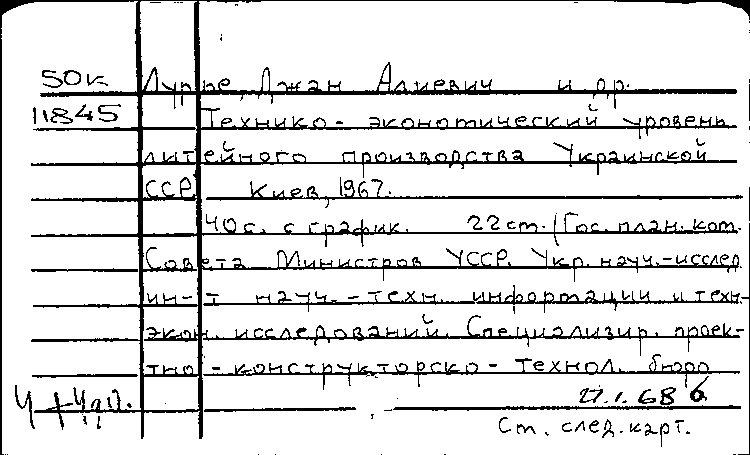 50к Лурье, Джан Алиевич и др.
11845 Технико-экономический уровень
литейного производства Украинской
ССР. Киев, 1967.
40 с. с график. 22 см. (Гос. план. ком.
Совета Министров УССР. Укр. науч.-исслед
ин-т науч.-техн. информации и техн-
экон. исследований. Специализир. проек-
тно-конструкторско-технол. бюро
27.1.68
Ст. след. карт.